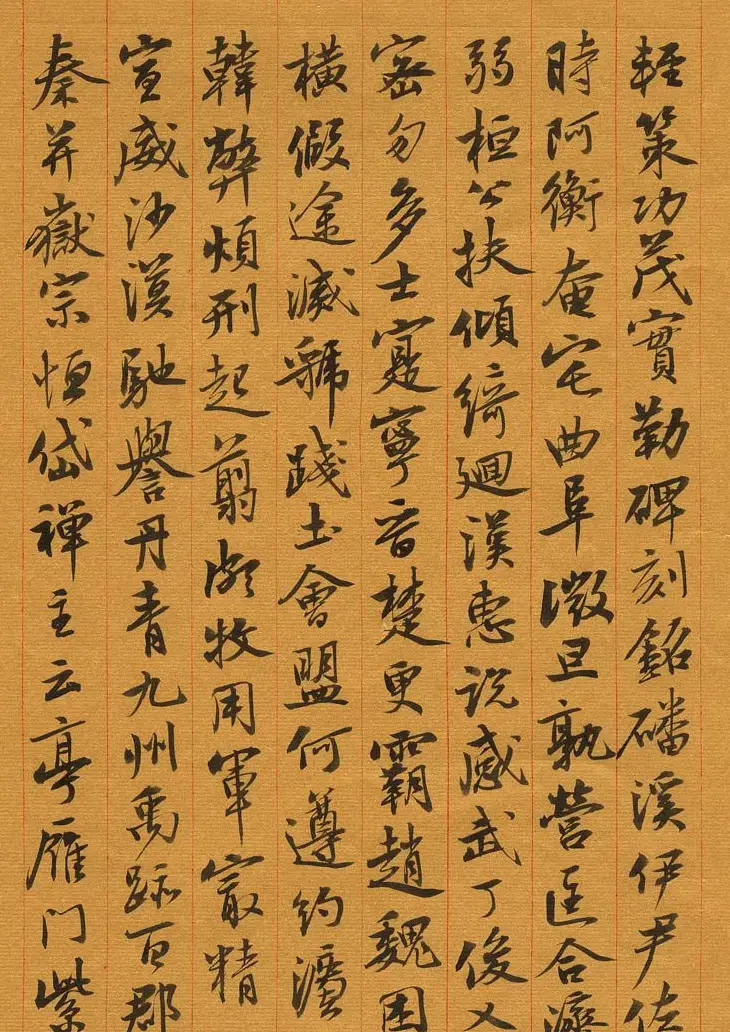 輕策功茂實勒碑刻銘磻溪伊尹佐
時阿衡奄宅曲阜微旦孰營匡合濟
弱桓公扶傾綺廻漢惠説感武丁俊乂
密勿多士寔寧晋楚更霸趙魏困
橫假途滅虢踐土會盟何遵約灋
韓弊煩刑起翦頗牧用軍㝡精
宣威沙漠馳譽丹青九州禹跡百郡
秦并嶽宗恒岱禪主云亭雁門紫